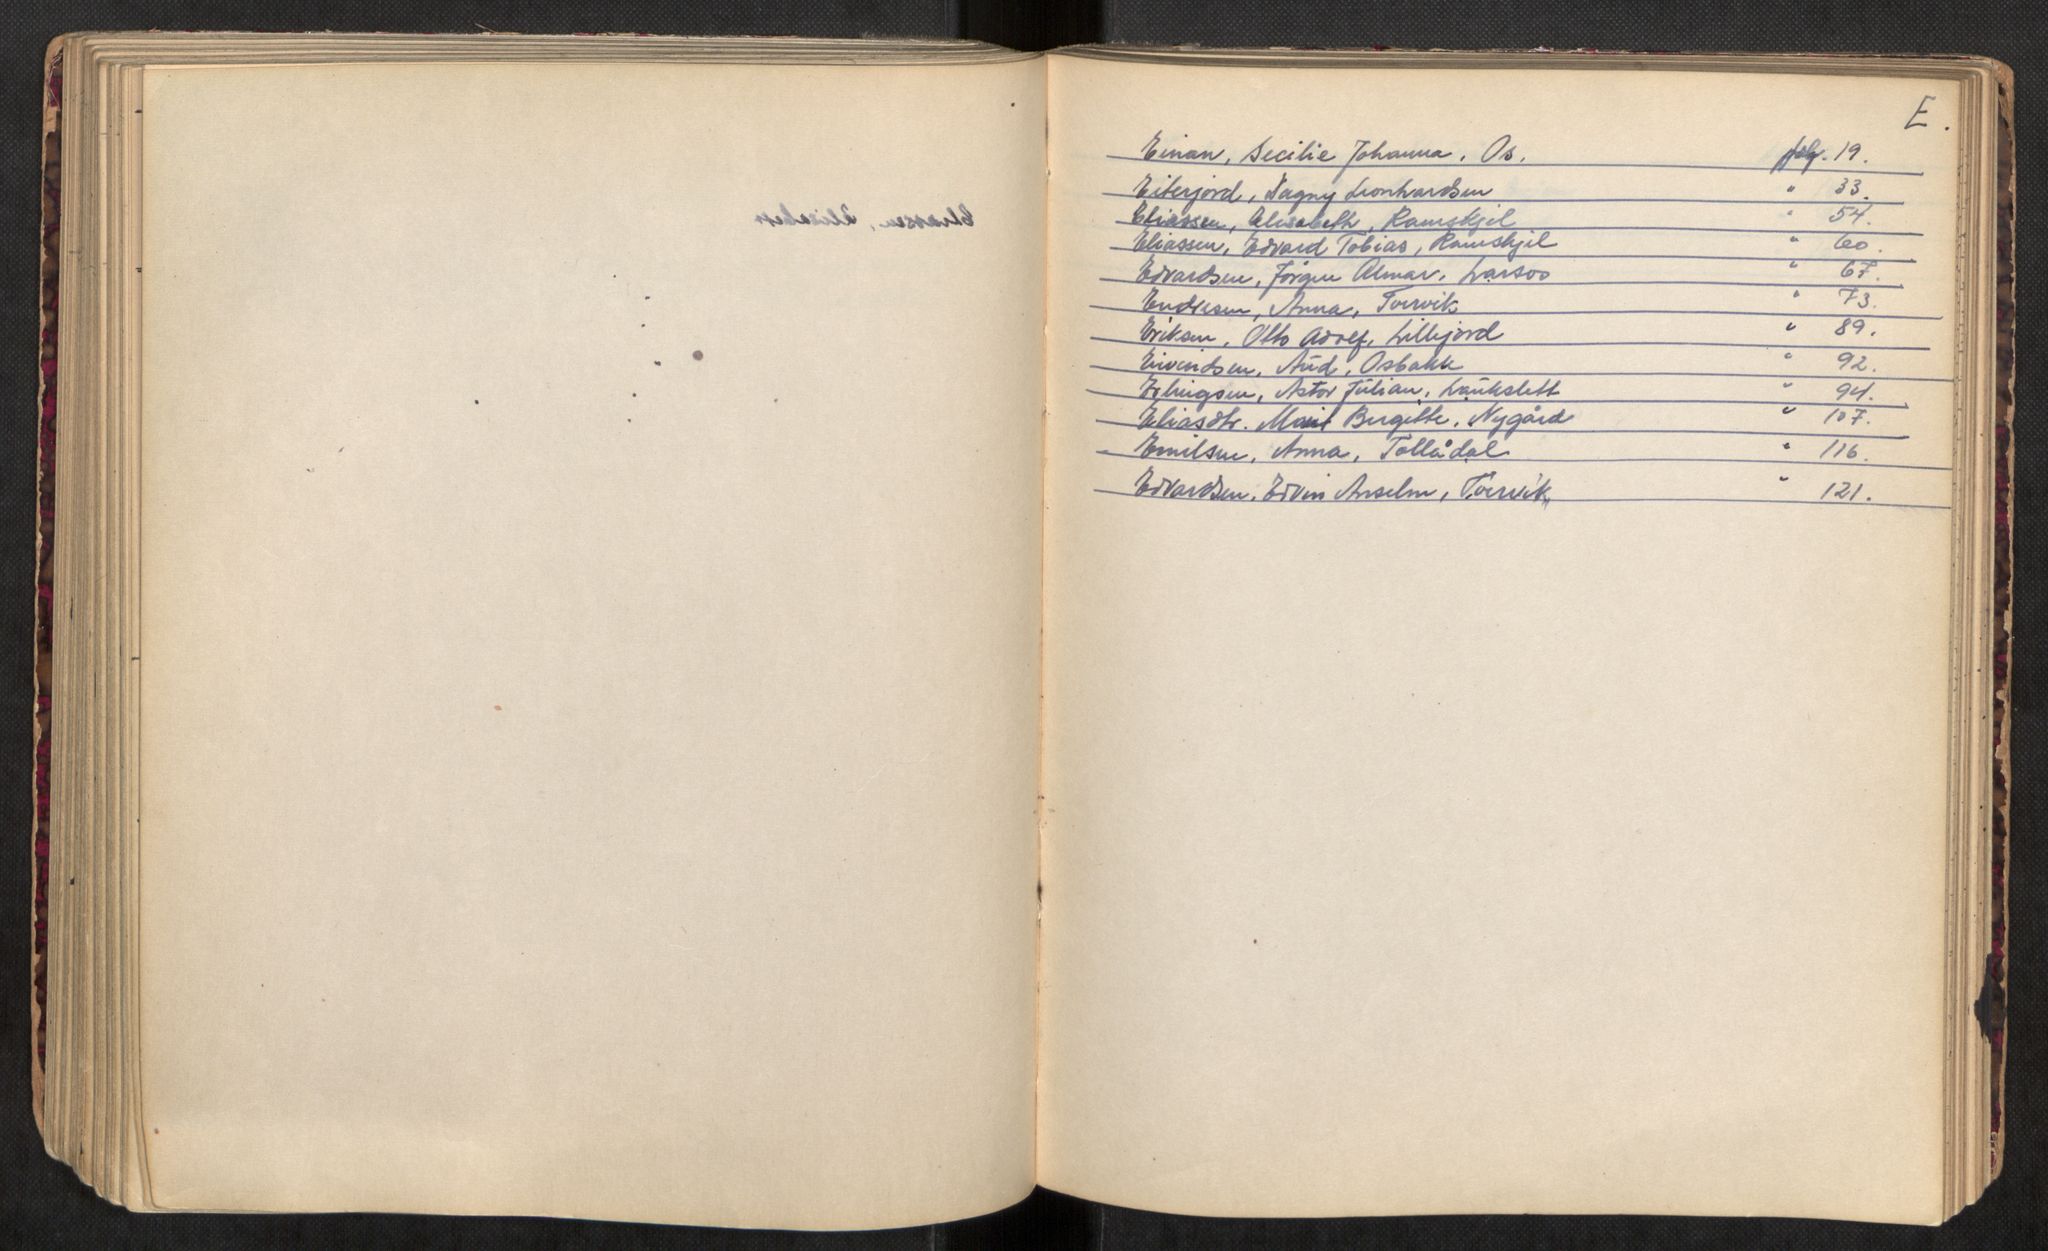 E.
Einan, Secilie Johanna, Os. følg. 19.
Eiterjord, Dagny Leonhardsen " 33.
Eliassen, Elisabeth, Ramskjil " 54.
Eliassen, Edvard Tobias, Ramskjil " 60.
Edvardsen, Jørgen Almar, Larsos " 67.
Endresen, Anna, Torvik " 73.
Eriksen, Otto Adolf, Lillejord " 89.
Eivindsen, Aud, Osbakk " 92.
Erlingsen, Astor Julian, Laukslett " 94.
Eliasdtr. Marit Bergitte, Nygård " 107.
Emilsen, Anna, Tollådal " 116.
Edvardsen, Edvin Anselm, Torvik " 121.